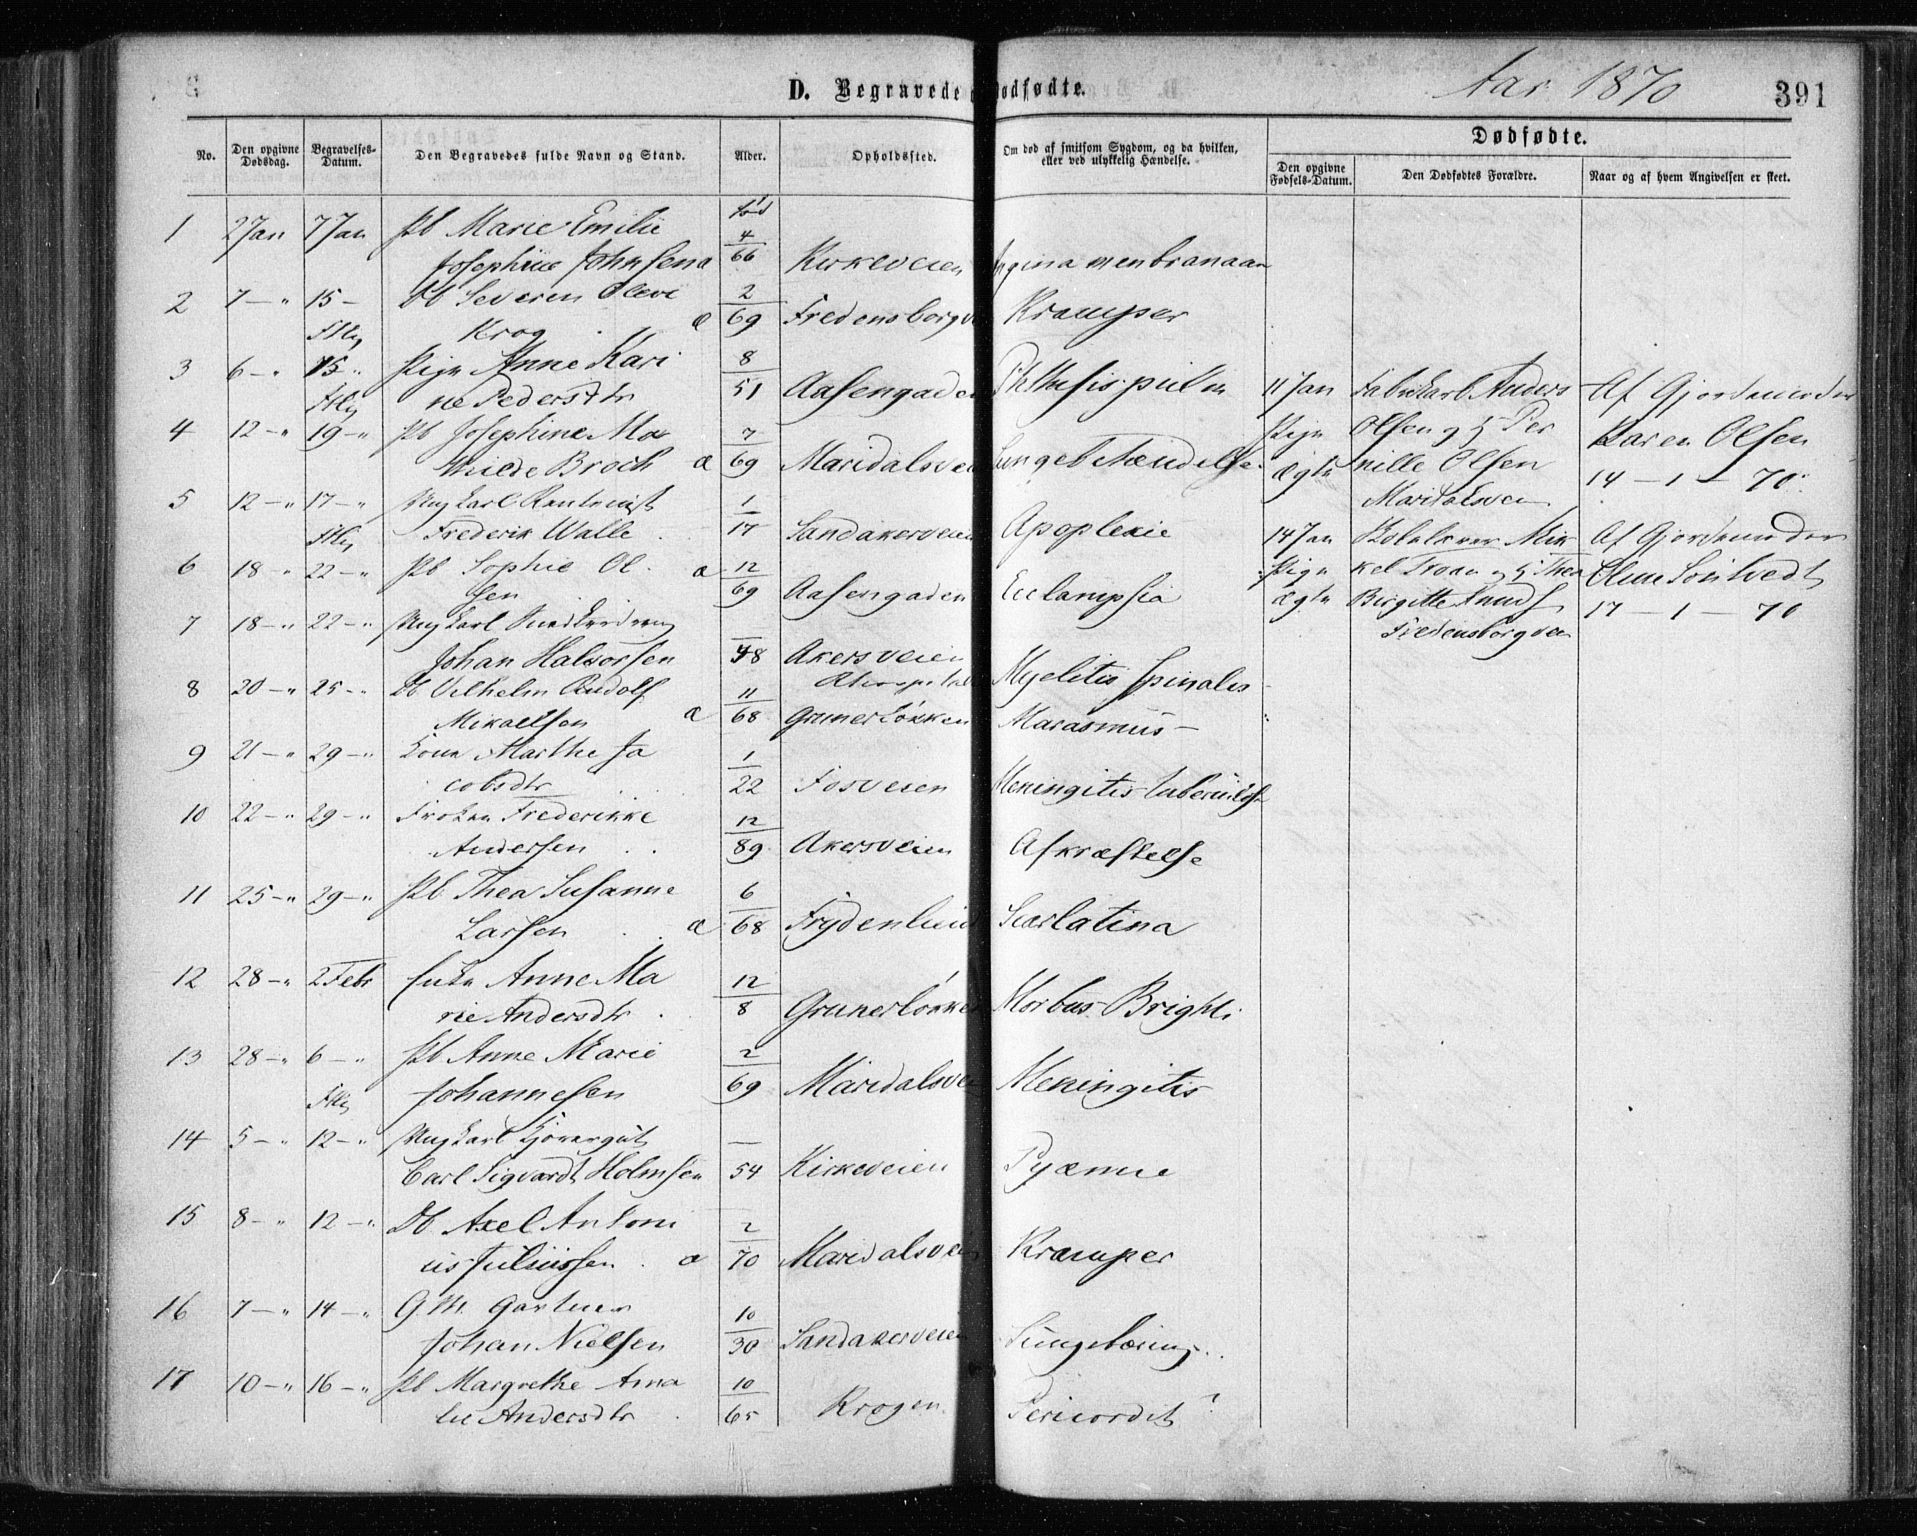 D. Begravede dødfødte.
Aar 1870
391
No.
Den opgivne Dødsdag.
Begravelses-Datum.
Den Begravedes fulde Navn og Stand.
Alder.
Opholdssted.
Om død af smitsom Sygdom, og da hvilken, eller ved ulykkelig Hændelse.
Dødfødte.
Den opgivne Fødsels-Datum.
Den Dødfødtes Forældre.
Naar og af hvem Angivelsen er skeet.
1 2 Jan 7 Jan Pb Marie Emilie født 4
Josephine Johnsen a 66 Kirkeveien Angina membranaan
2 7 -" 15 - Db Severin 2
Krog a 69 Fredensborgv Kramper
3 6 -" 15 " Pige Anne Kari 8
ne Pedersdtr 51 Aasengaden Phthisis pulm
4 12 -" 19 -" Pb Josephine Ma 7
thilde Broch a 69 Maridalsvei Lungebetændelse
5 12 -" 17 -" Ungkarl 1
Frederik Walle 17 Sandakerveien Apoplexie
6 18 -" 22 -" Pb Sophie Ol 12
sen a 69 Aasengaden Eclampsia
7 18 -" 22 -" Ungkarl
Johan Halvorsen 48 Akersveien
Myelitis spinalis
8 20 -" 25 -" Db Vilhelm Rudolf 11
Mikaelsen a 68 Grunerløkken Marasmus -
9 21 -" 29 -" Kone Marthe Ja 1
cobsdtr 22 Fosveien Meningitis tuberculosa
10 22 -" 29 -" Frøken Frederikke 12
Andersen 89 Akersveien Afkræftelse
11 25 -" 29 -" Pb Thea Susanne 6
Larsen a 68 Frydenlund Scarlatina
12 28 -" 2 Febr Enke Anne Ma 12
rie Andersdtr 8 Grunerløkken Morbus Brighti
13 28 -" 6 -" Pb Anne Marie 2
Johannesen 69 Maridalsvei Meningitis
14 5 -" 12 -" Ungkarl
Carl Sigvardt Holmsen 54 Kirkeveien Pyæmie
15 8 -" 12 -" Db Axel Antoni 2
us Juliussen a 70 Maridalsvei Kramper
16 7 -" 14 -" G. M. Gartner 10
Johan Nielsen 30 Sandakerveien Lungetæring
17 10 -" 16 -" Pb Margrethe Ama 10
lie Andersdtr 65 Krogen Pericardit ?
11 Jan Fabrkarl Anders Af Gjordemoder
Pige Olsen og H Per Karen Olsen
ægte nille Olsen 14 - 1 - 70
Maridalsvei
14 Jan Skolelærer Mik Af Gjordemoder
Pige kel Troan og H Thea
ægte Birgitte 17 - 1 - 70
Fredensborgvei